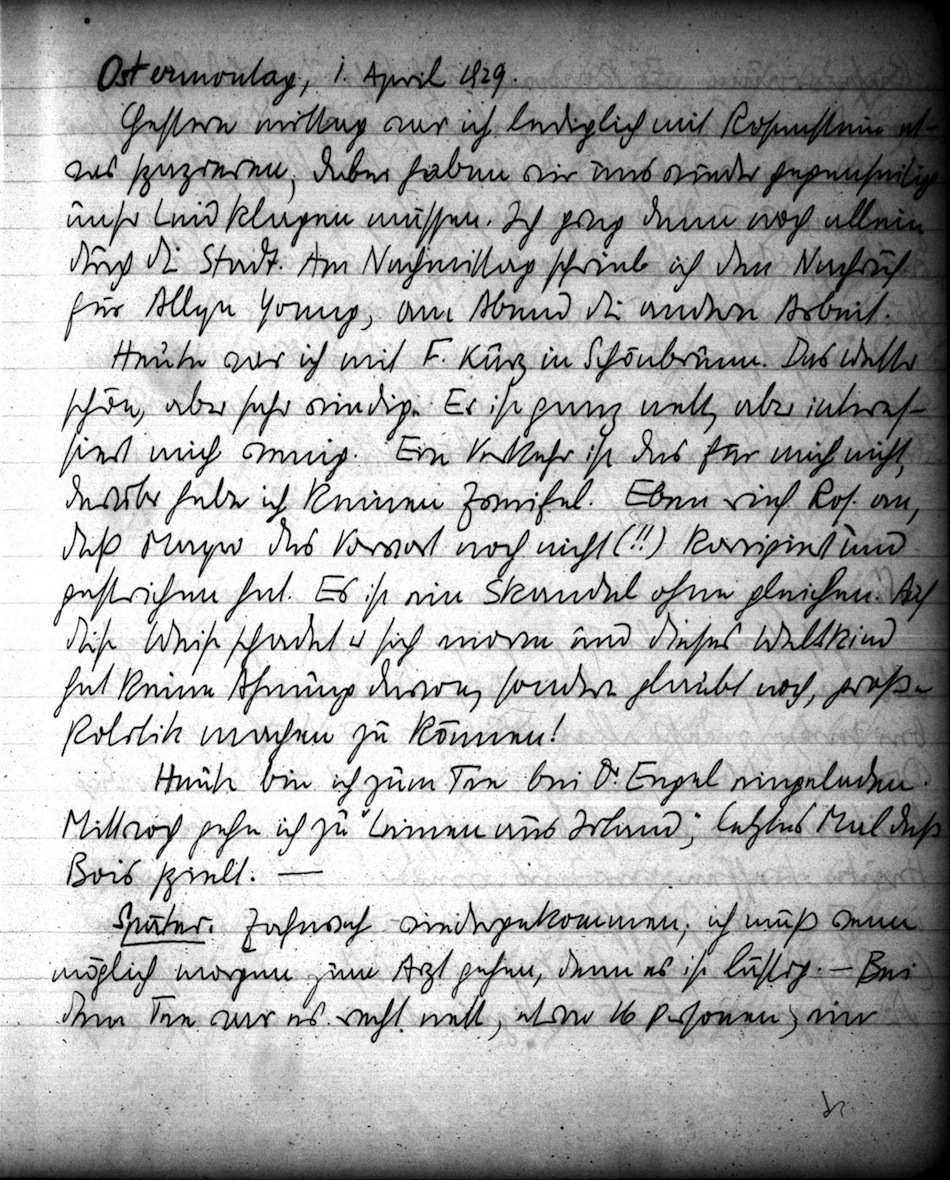 Ostermontag, 1. April 1929.
Gestern mittag war ich lediglich mit Rosenstein et-
was spazieren, dabei haben wir uns wieder gegenseitig
unser Leid klagen müssen. Ich ging dann noch allein
durch die Stadt. Am Nachmittag schrieb ich den Nachruf
für Allyn Young, am Abend die andere Arbeit.
Heute war ich mit F. Kürz in Schönbrunn. Das Wetter
schön, aber sehr windig. Er ist ganz nett, aber interes-
siert mich wenig. Ein Verkehr ist das für mich nicht,
darüber habe ich keinen Zweifel. Eben rief Ros. an,
daß Mayer das Vorwort noch nicht (!!) korrigiert und
gestrichen hat. Es ist ein Skandal ohne gleichen. Auf
diese Weise schadet er sich enorm und dieses Weltkind
hat keine Ahnung davon, sondern glaubt noch, große
Politik machen zu können!
Heute bin ich zum Tee bei Dr. Engel eingeladen.
Mittwoch gehe ich zu "Leinen aus Irland"; letztes Mal daß
Bois spielt. —
Später. Zahnweh wiedergekommen; ich muß wenn
möglich morgen zum Arzt gehen, denn es ist lästig. — Bei
dem Tee war es recht nett, etwa 16 Personen, eine